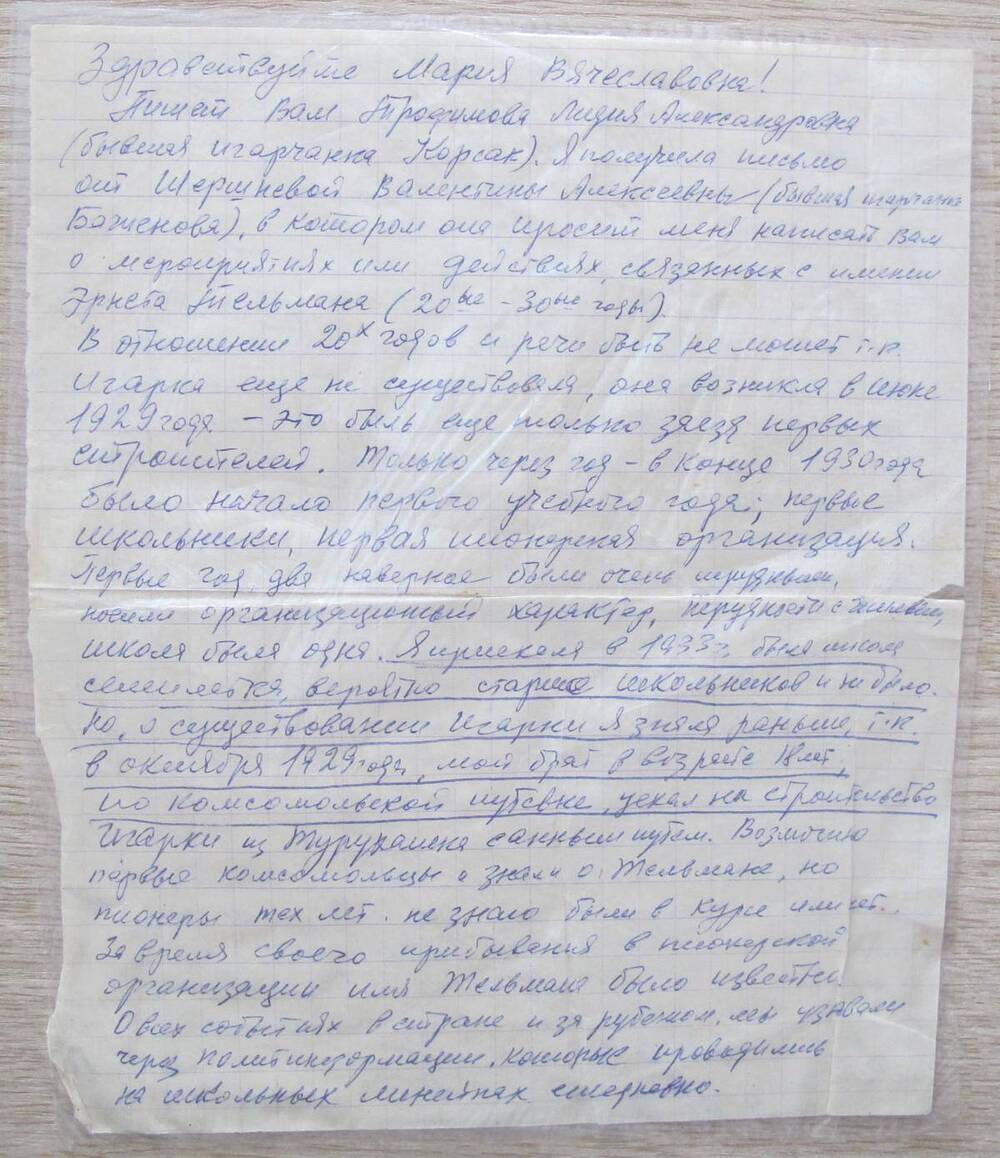 Здравствуйте Мария Вячеславовна!
Пишет Вам Трофимова Лидия Александровна
(бывшая игарчанка Корсак). Я получила письмо
от Шершневой Валентины Алексеевны (бывшая игарчанка
Баженова), в котором она просит меня написать Вам
о мероприятиях или действиях, связанных с именем
Эрнста Тельмана (20ые - 30ые годы).
В отношении 20х годов и речи быть не может т.к.
Игарка еще не существовала, она возникла в июне
1929 года – это был еще только заезд первых
строителей. Только через год – в конце 1930 года
было начало первого учебного года; первые
школьники, первая пионерская организация.
Первые год, два наверное были очень трудными,
носили организационный характер, трудности с жильем,
школа была одна. Я приехала в 1933 г, была школа
семилетка, вероятно старше школьников и не было.
Но, о существовании Игарки я знала раньше, т.к.
в октября 1929 года, мой брат в возрасте 18 лет,
по комсомольской путевке, уехал на строительство
Игарки из Туруханска санным путем. Возможно
первые комсомольцы и знали о Тельмане, но
пионеры тех лет. не знаю были в курсе или нет..
За время своего прибывания в пионерской
организации имя Тельмана было известно.
О всех событиях в стране и за рубежом, мы узнавали
через политинформации, которые проводились
на школьных линейках ежедневно.